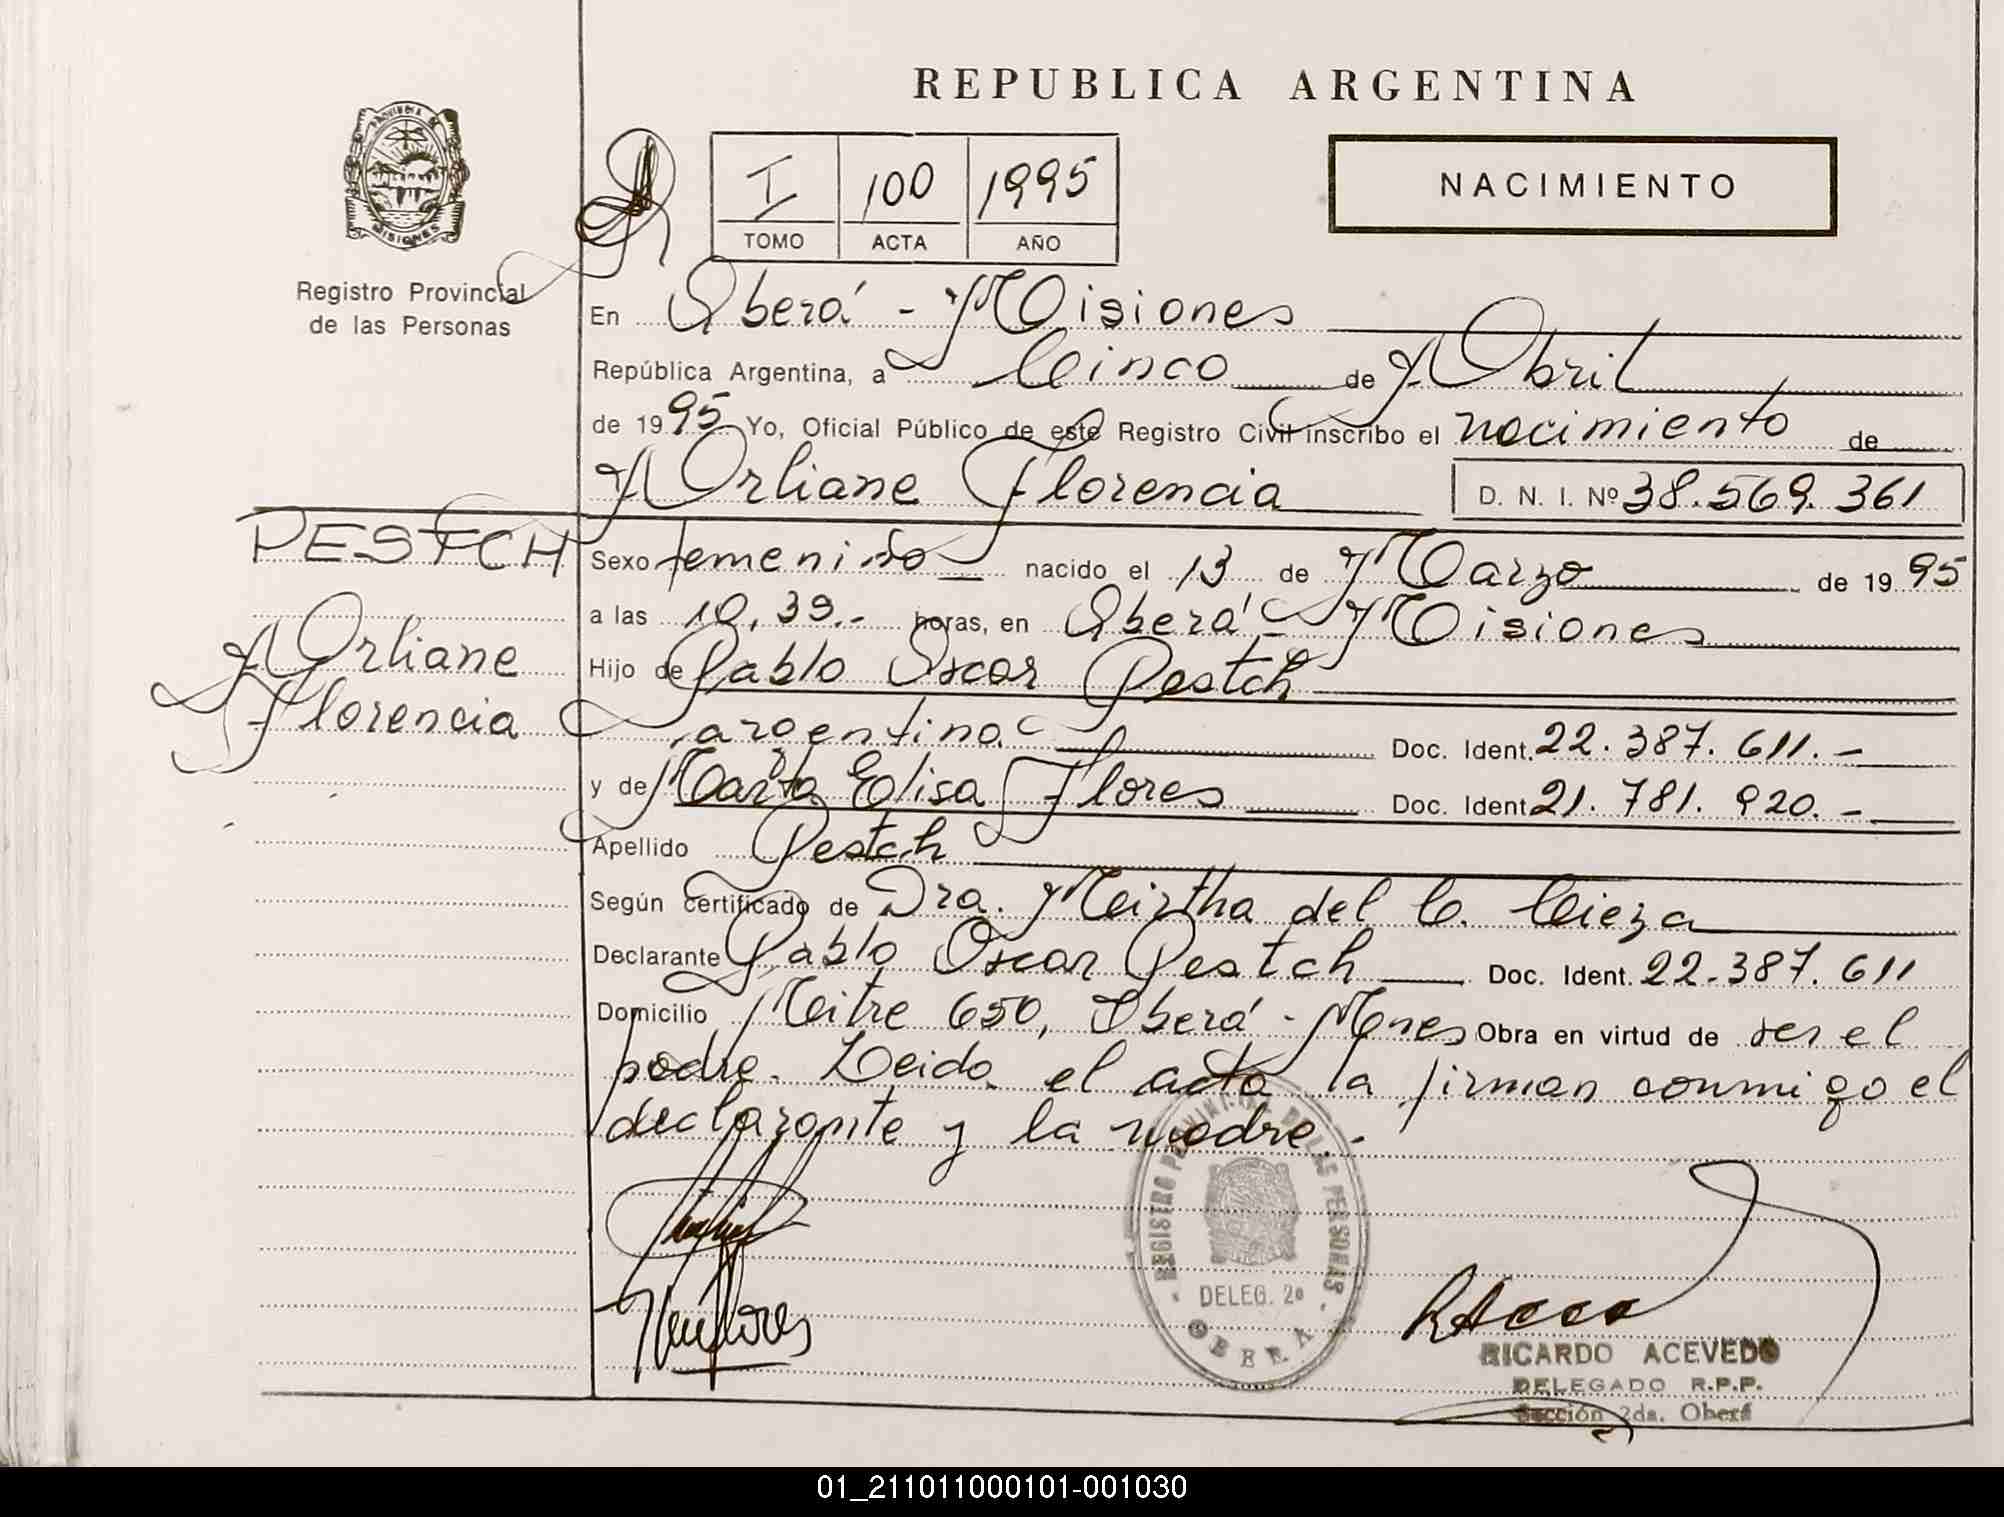 REPUBLICA ARGENTINA
PROVINCIA DE
MISIONES
Registro Provincial
de las Personas
I 100 1995
TOMO ACTA AÑO
NACIMIENTO
En Oberá - Misiones
República Argentina, a Cinco de Abril
de 1995 Yo, Oficial Público de este Registro Civil inscribo el nacimiento de
Arliane Florencia D. N. I. Nº 38.569.361
PESTCH
Arliane
Florencia
Sexo femenino nacido el 13 de Marzo de 1995
a las 10,39.- horas, en Oberá - Misiones
Hijo de Pablo Oscar Pestch
argentino Doc. Ident. 22.387.611.-
y de Marta Elisa Flores Doc. Ident. 21.781.920.-
Apellido Pestch
Según certificado de Dra. Mirtha del C. Cieza
Declarante Pablo Oscar Pestch Doc. Ident. 22.387.611
Domicilio Mitre 650, Oberá - Mnes Obra en virtud de ser el
padre. Leida el acta la firman conmigo el
declarante y la madre.
REGISTRO PROVINCIAL DE LAS PERSONAS
DELEG. 2ª
OBERA
RICARDO ACEVEDO
DELEGADO R.P.P.
Sección 2da. Oberá
01_211011000101-001030